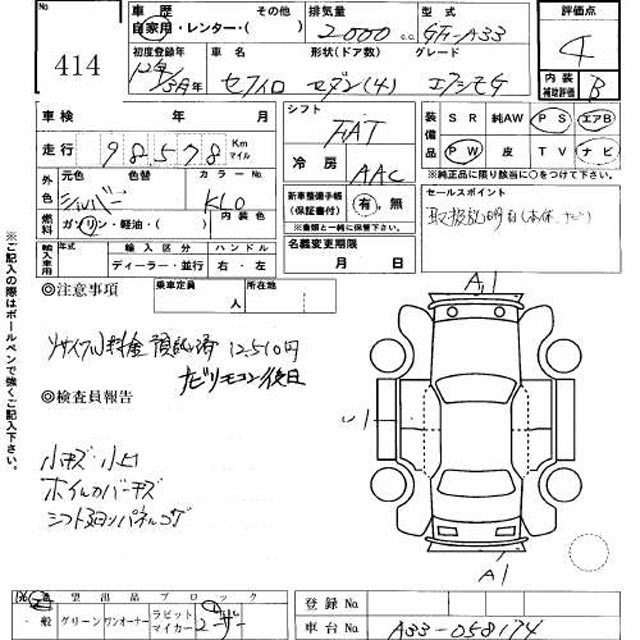 No 414
車歴 その他
自家用・レンター・( )
排気量 2000 c.c.
型式 GF-A33
評価点 4
初度登録年 12年 3月
車名 セフィロ
形状(ドア数) セダン(4)
グレード エクシモG
内装補助評価 B
車検 年 月
走行 98,578 Km マイル
外色 元色 シルバー 色替 カラーNo. KL0
燃料 ガソリン・軽油・( ) 内装色
輸入車用 年式 輸入区分 ディーラー・並行 ハンドル 右・左
シフト FAT
冷房 AAC
新車整備手帳(保証書付) 有,無
※書類と一緒に保管下さい。
名義変更期限
月 日
装備品 SR 純AW PS エアB
PW 皮 TV ナビ
※純正品に限り該当に○をつけて下さい。
セールスポイント
取扱説明書(本体、ナビ)
◎注意事項
乗車定員 人
所在地
リサイクル料金預託済 12,510円
ナビリモコン後日
◎検査員報告
小キズ・小凹
ホイルカバーキズ
シフト
A1
A1
※ご記入の際はボールペンで強くご記入下さい。
希望出品ブロック
一般 グリーン ワンオーナー ラビットマイカー ユーザー
登録No
車台No A33-058174